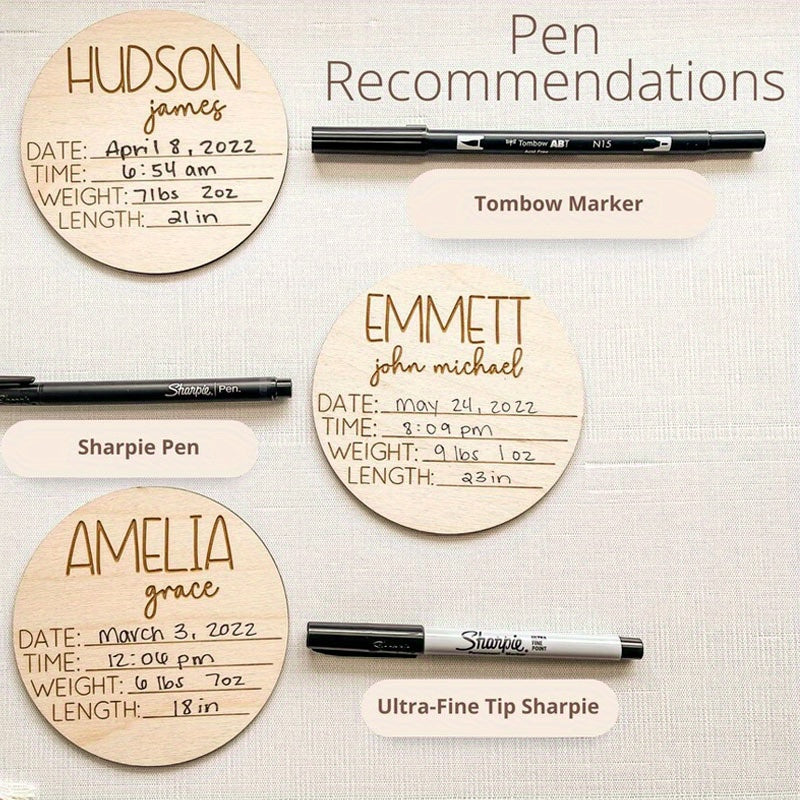 Pen
Recommendations
HUDSON
james
DATE: April 8, 2022
TIME: 6:54 am
WEIGHT: 7lbs 2oz
LENGTH: 21 in
Tombow ABT N15
Tombow Marker
EMMETT
john michael
DATE: may 24, 2022
TIME: 8:09 pm
WEIGHT: 9 lbs 1 oz
LENGTH: 23 in
Sharpie. Pen.
Sharpie Pen
AMELIA
grace
DATE: march 3, 2022
TIME: 12:06 pm
WEIGHT: 6 lbs 7oz
LENGTH: 18 in
Sharpie. ULTRA
FINE
POINT
Ultra-Fine Tip Sharpie